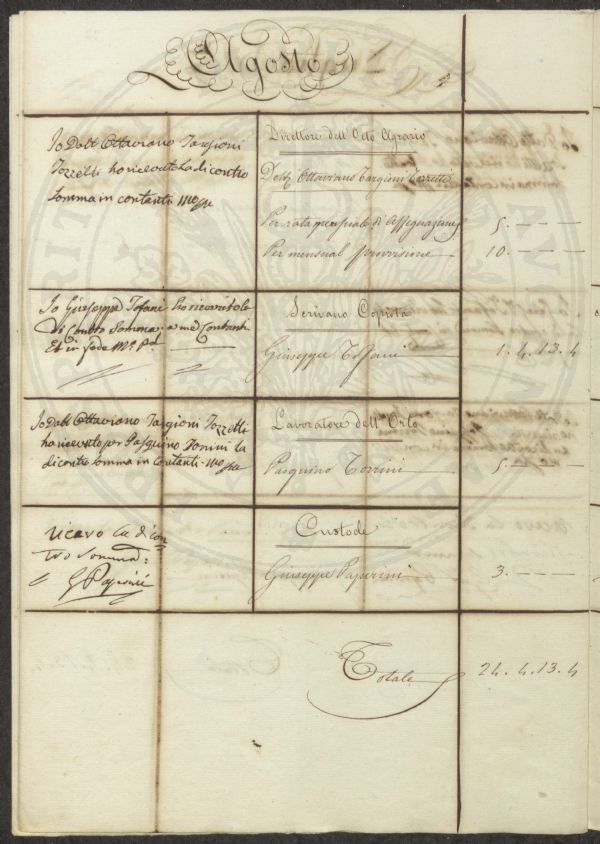 Agosto
Io Dott. Ottaviano Targioni
Tozzetti ho ricevuto la di contro
somma in contanti
Direttore dell'Orto Agrario
Dott. Ottaviano Targioni Tozzetti
Per rata mensuale di Assegnazione 5. — — —
Per mensual provvisione 10. — — —
Io Giuseppe Tofani ho ricevito la
Di Contro Somma a me Contanti
Et in fede
Scrivano Copista
Giuseppe Tofani 1. 4. 13. 4
Io Dott. Ottaviano Targioni Tozzetti
ho ricevuto per Pasquino Torrini la
di contro somma in Contanti
Lavoratore dell'Orto
Pasquino Torrini 5. — — —
ricevo la di con
tro somma
G Papirini
Custode
Giuseppe Papirini 3. — — —
Totale 24. 4. 13. 4